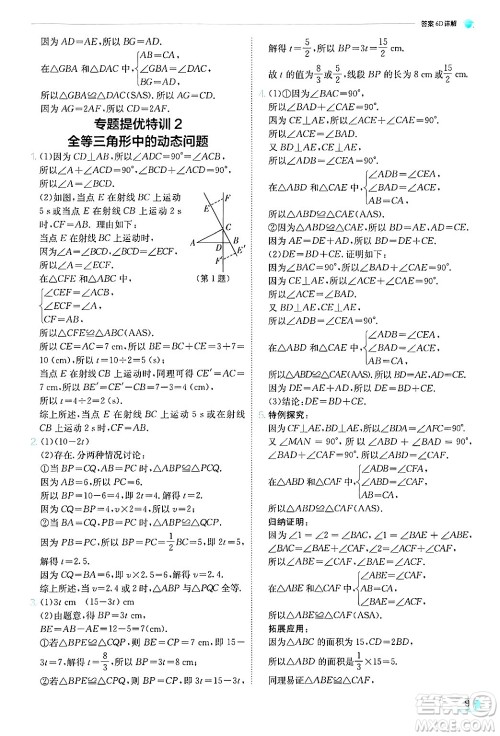 答案 6D 详解
因为 AD=AE,所以 BG=AE.
在△GBA 和△DAC 中,
BA=CA,
∠GBA=∠CAD,
BG=AD,
所以△GBA≌△DAC(SAS). 所以 AG=CD.
因为 AG=2AF, 所以 CD=2AF.
专题提优特训 2
全等三角形中的动态问题
1. (1)因为 CD⊥AB,所以∠ADC=90°.
所以∠A+∠ACD=90°.
(2)如图,当点 E 在射线 BC 上运动
5 s 或当点 E 在射线 CB 上运动 2 s
时,CF=AB. 理由如下:
当点 E 在射线 BC 上运动时,
因为∠A=∠BCD, ∠BCD=∠ECF,
所以∠A=∠ECF.
(第 1 题)
在△CFE 和△ABC 中,
∠CEF=∠ACB,
∠ECF=∠A,
CF=AB,
所以△CEF≌△ACB(AAS).
所以 CE=AC=7 cm,
所以 BE=BC+CE=3+7=10(cm).
所以 t=10÷2=5(s).
当点 E 在射线 CB 上运动时,同理可得 CE′=AC=
7 cm,所以 BE′=CE′-CB=7-3=4(cm).
所以 t=4÷2=2(s).
综上所述,当点 E 在射线 BC 上运动 5 s 或当点 E 在
射线 CB 上运动 2 s 时,CF=AB.
2. (1)(10-2t)
(2)存在. 分两种情况讨论:
①当 BP=CQ,AB=PC 时,△ABP≌△PCQ.
因为 AB=6,所以 PC=6.
所以 BP=10-6=4,即 2t=4. 解得 t=2.
因为 CQ=BP=4,所以 v×2=4. 所以 v=2.
②当 BA=CQ,PB=PC 时,△ABP≌△QCP.
因为 PB=PC,所以 BP=PC=1/2 BC=5,即 2t=5. 解
得 t=2.5.
因为 CQ=BA=6,所以 v×2.5=6. 所以 v=2.4.
综上所述,当 v=2.4 或 2 时,△ABP 与△PQC 全等.
3. (1)3t cm (15-3t) cm
(2)由题意,得 BP=3t cm,PC=(15-3t)cm,
BE=AB-AE=12-5=7(cm).
①若△BPE≌△CPQ,则 BP=CP,即 3t=15-
3t,所以 t=5/2. 所以 BP=3t=3×5/2=15/2(cm);
②若△BPE≌△CQP,则 BE=CP,即 7=15-3t,
解得 t=8/3,所以 BP=3t=3×8/3=8(cm).
故 t 的值为 8/3 或 5/2,线段 BP 的长为 8 cm 或 15/2 cm.
4. (1)①因为∠BAC=90°,
所以∠BAD+∠CAE=90°.
因为 CE⊥AE,所以∠ACE+∠CAE=90°.
所以∠BAD=∠ACE.
又 BD⊥AE,所以∠ADB=∠CEA=90°.
在△ABD 和△CAE 中,
∠BAD=∠ACE,
∠ADB=∠CEA,
AB=CA,
所以△ABD≌△CAE(AAS).
②由△ABD≌△CAE,所以 BD=AE,AD=CE.
因为 AE=DE+AD,所以 BD=DE+CE.
(2)BD=DE-CE. 证明如下:
因为∠BAC=90°,
所以∠BAD+∠CAE=90°.
因为 BD⊥DE,所以∠BAD+∠ABD=90°.
所以∠ABD=∠CAE.
因为 CE⊥DE,所以∠ADB=∠CEA=90°.
在△ABD 和△CAE 中,
∠ADB=∠CEA,
∠ABD=∠CAE,
AB=CA,
所以△ABD≌△CAE(AAS).
所以 BD=AE,AD=CE.
因为 AE=DE-AD,所以 BD=DE-CE.
(3)结论:DE=BD+CE.
5. 特例探究:
因为 CF⊥AE,所以∠BDA=∠AFC=90°.
又∠MAN=90°,所以∠ABD+∠BAD=90°,
∠BAD+∠CAF=90°. 所以∠ABD=∠CAF.
在△ABD 和△CAF 中,
∠ADB=∠CFA,
∠ABD=∠CAF,
AB=CA,
所以△ABD≌△CAF(AAS).
归纳证明:
因为∠1=∠2=∠BAC,∠1=∠BAE+∠ABE,
∠BAC=∠BAE+∠CAF,∠2=∠FCA+∠CAF,
所以∠ABE=∠CAF,∠BAE=∠FCA.
在△ABE 和△CAF 中,
∠ABE=∠CAF,
AB=CA,
∠BAE=∠ACF,
所以△ABE≌△CAF(ASA).
拓展应用:
因为△ABC 的面积为 15,CD=2BD,
所以△ABD 的面积为 1/3×15=5.
同理易证△ABE≌△CAF,